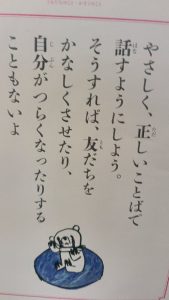 やさしく、正しいことばで
話すようにしよう。
そうすれば、友だちを
かなしくさせたり、
自分がつらくなったりする
こともないよ